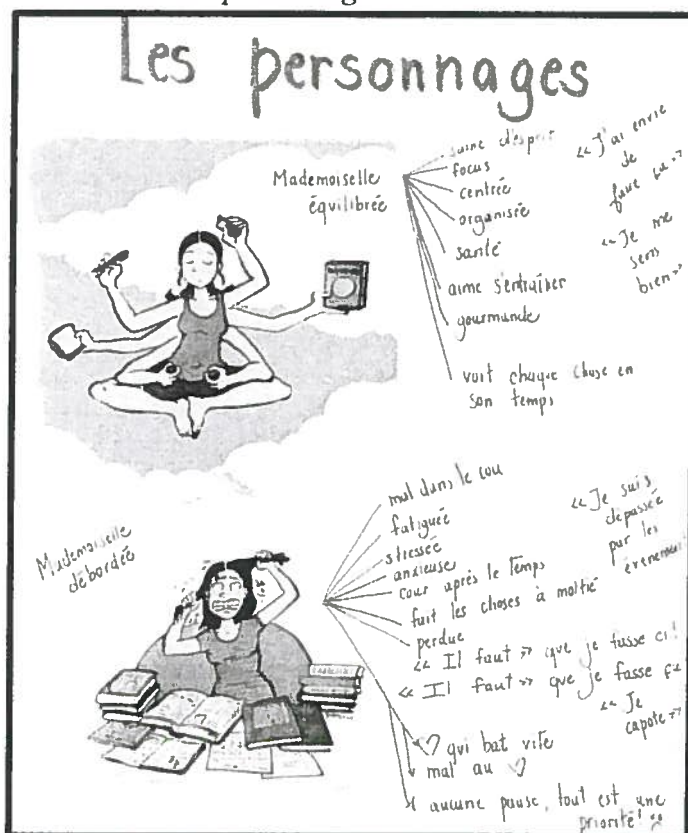 Les personnages
Mademoiselle
équilibrée
saine d'esprit
focus
centrée
organisée
santé
aime s'entraîner
gourmande
voit chaque chose en
son temps
« J'ai envie
de
faire ça »
« Je me
sens
bien »
Mademoiselle
débordée
mal dans le cou
fatiguée
stressée
anxieuse
cour après le temps
fait les choses à moitié
perdue
« Il faut » que je fasse ci!
« Il faut » que je fasse ça
« Je suis
dépassée
par les
évènement
« Je
capote »
♡ qui bat vite
mal au ♡
aucune pause, tout est une
priorité!